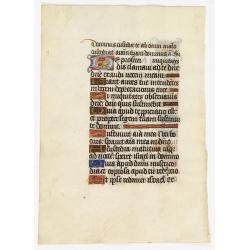 Dominus custodit te ab omni malo
custodiat animam tuam dominus
De profundis
clamavi ad te domine
domine exaudi vocem meam
fiant aures tue intendentes
in vocem deprecationis mee
Si iniquitates observaveris
domine domine quis sustinebit
Quia apud te propiciatio est
et propter legem tuam sustinui
te domine
Sustinuit anima mea in verbo
eius speravit anima mea in domino
A custodia matutina usque
ad noctem speret israel in domino
Quia apud dominum misericor
dia et copiosa apud eum redemptio
Et ipse redimet israel ex